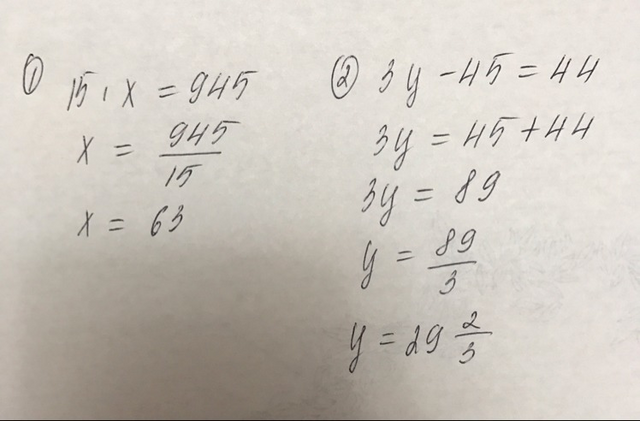 ① 15 · x = 945
x = 945/15
x = 63
② 3y - 45 = 44
3y = 45 + 44
3y = 89
y = 89/3
y = 29 2/3